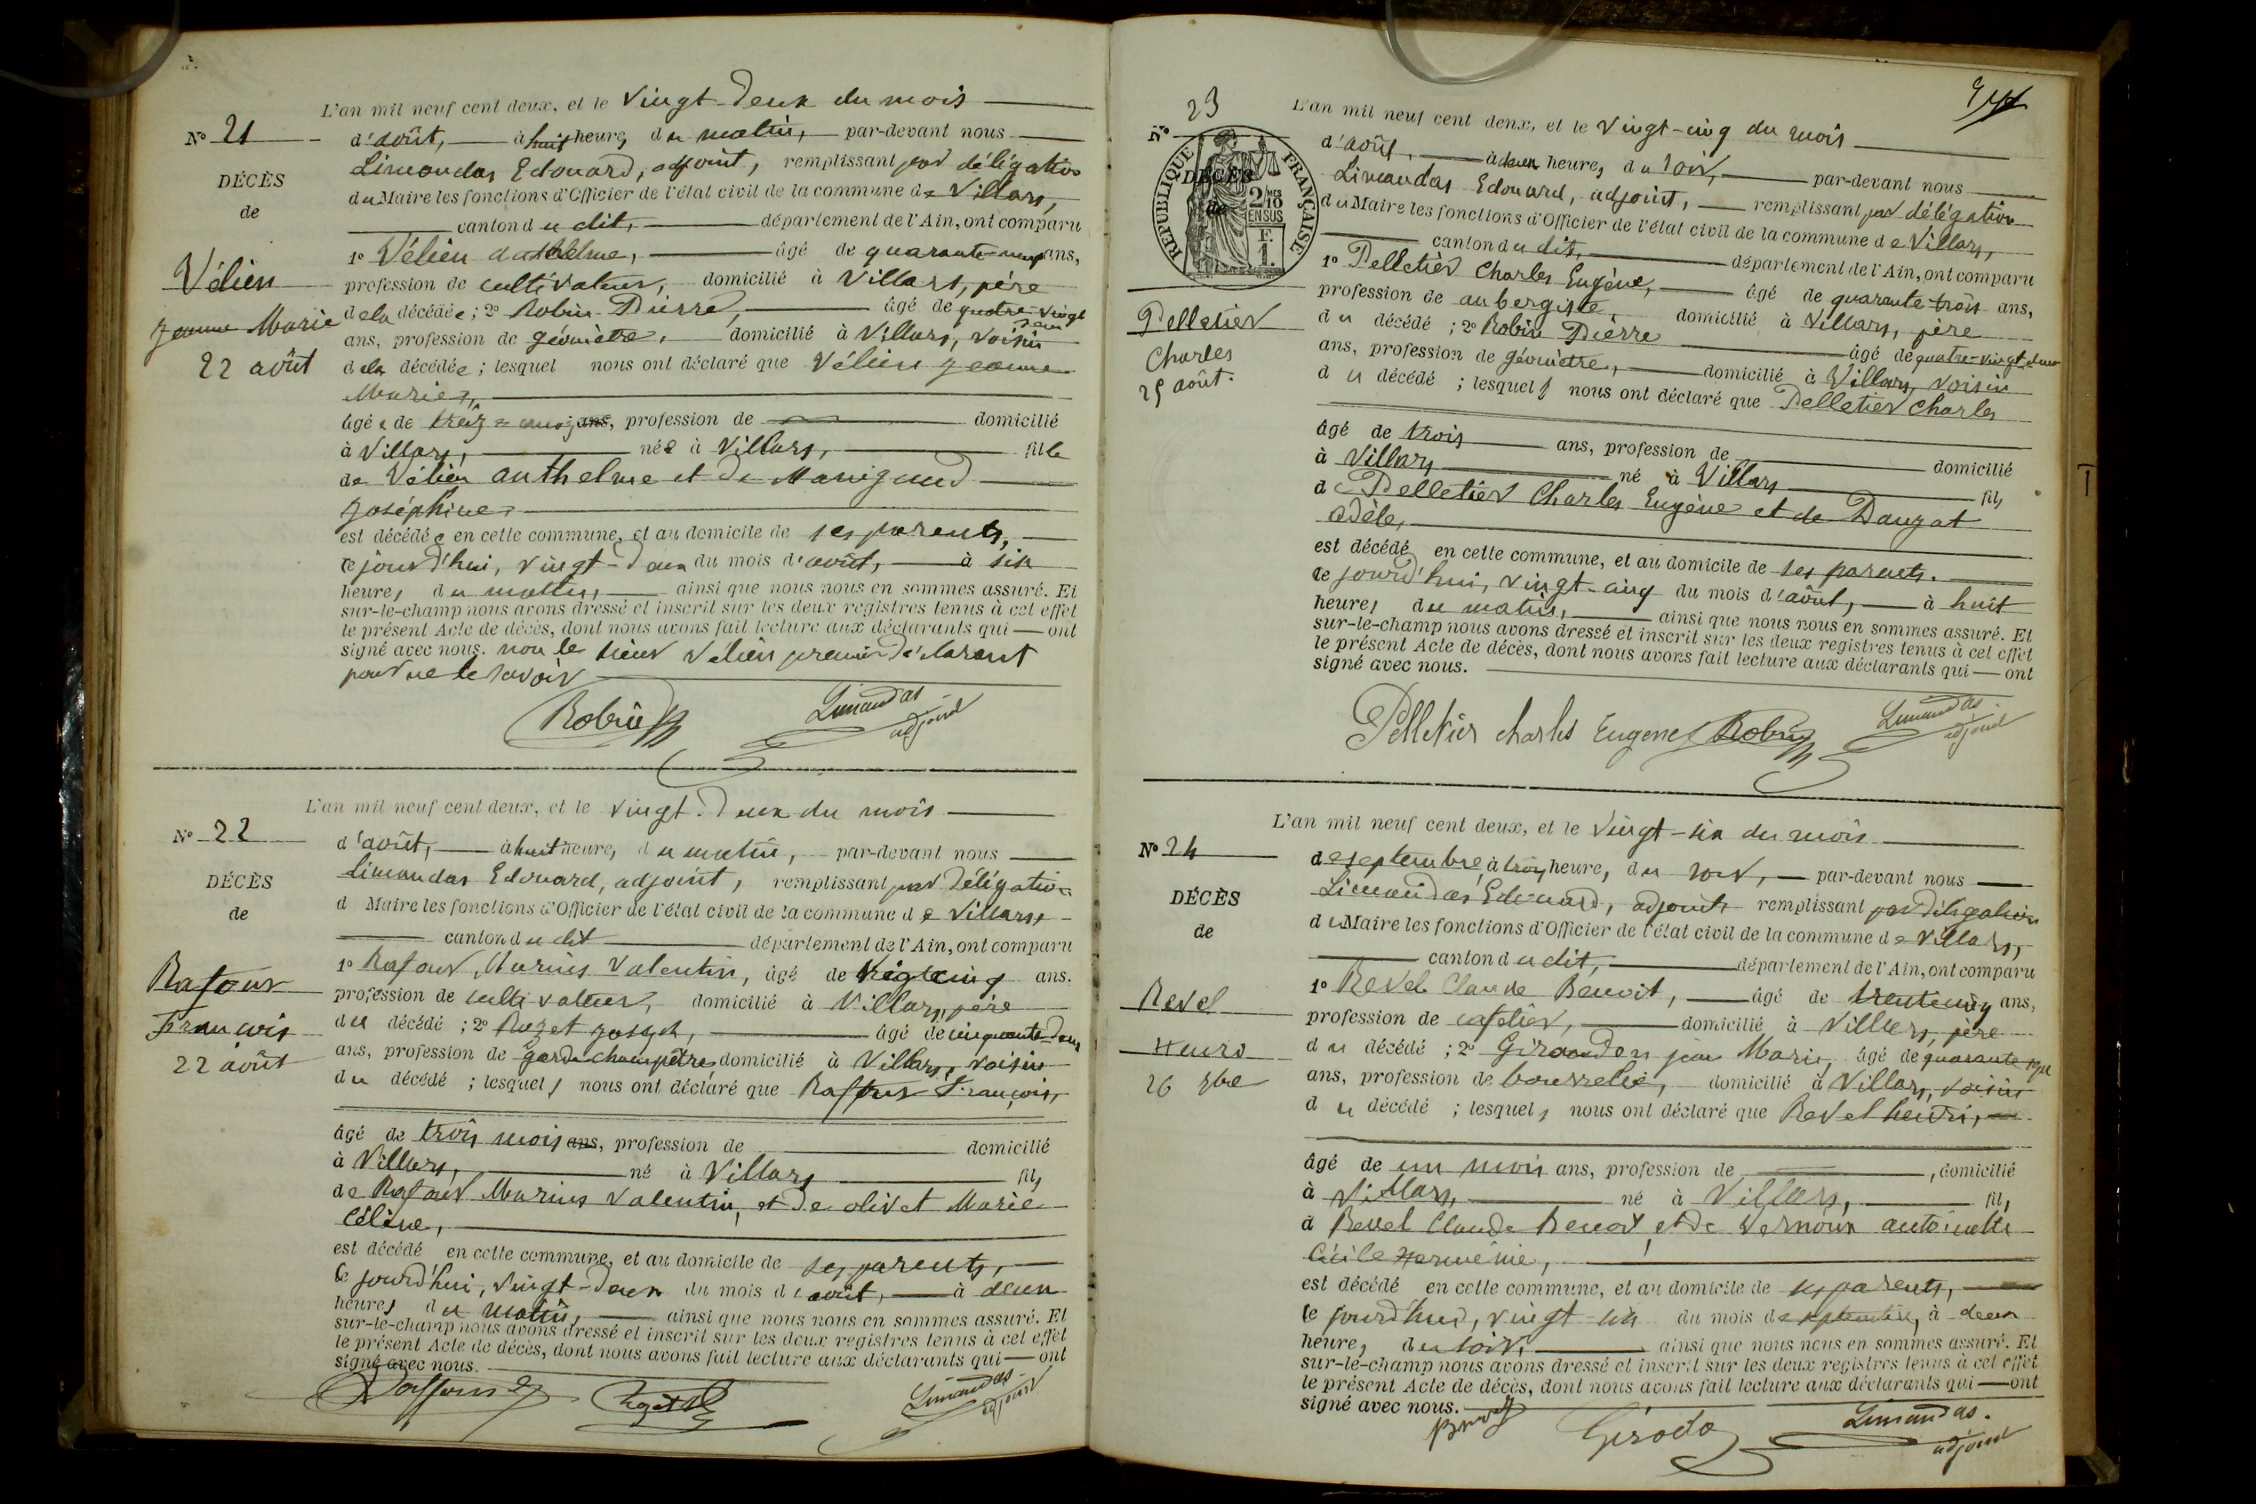 L'an mil neuf cent deux, et le vingt-deux du mois
N° 21
d'août, à huit heures du matin, par-devant nous
Limandas Edouard, adjoint, remplissant par délégation
DÉCÈS
du Maire les fonctions d'Officier de l'état civil de la commune de Villars,
de
canton du dit, département de l'Ain, ont comparu
1° Vélien Anthelme, âgé de quarante-neuf ans,
Vélien
profession de cultivateur, domicilié à Villars, père
Jeanne Marie
de la décédée ; 2° Robin Pierre, âgé de quatre-vingt
deux
ans, profession de géomètre, domicilié à Villars, voisin
22 août
de la décédée ; lesquel nous ont déclaré que Vélien Jeanne
Marie,
âgée de treize mois ans, profession de domicilié
à Villars, née à Villars, fille
de Vélien Anthelme et de Manigand
Joséphine,
est décédée en cette commune, et au domicile de ses parents,
ce jourd'hui, vingt-deux du mois d'août, à six
heures du matin, ainsi que nous nous en sommes assuré. Et
sur-le-champ nous avons dressé et inscrit sur les deux registres tenus à cet effet
le présent Acte de décès, dont nous avons fait lecture aux déclarants qui ont
signé avec nous. non le sieur Vélien premier déclarant
pour ne le savoir
Robin Limandas
adjoint
L'an mil neuf cent deux, et le vingt-deux du mois
N° 22
d'août, à huit heures du matin, par-devant nous
Limandas Edouard, adjoint, remplissant par délégation
DÉCÈS
d Maire les fonctions d'Officier de l'état civil de la commune de Villars,
de
canton du dit département de l'Ain, ont comparu
1° Rafour, Marius Valentin, âgé de ans.
Rafour
profession de cultivateur, domicilié à Villars, père
François
du décédé ; 2° Rozet Joseph, âgé de cinquante-deux
22 août
ans, profession de garde champêtre, domicilié à Villars, voisin
du décédé ; lesquels nous ont déclaré que Rafour François,
âgé de trois mois ans, profession de domicilié
à Villars, né à Villars fils
de Rafour Marius Valentin, et de Olivet Marie
Céline,
est décédé en cette commune, et au domicile de ses parents,
ce jourd'hui, vingt-deux du mois d'août, à deux
heures du matin, ainsi que nous nous en sommes assuré. Et
sur-le-champ nous avons dressé et inscrit sur les deux registres tenus à cet effet
le présent Acte de décès, dont nous avons fait lecture aux déclarants qui ont
signé avec nous.
Limandas
adjoint
N° 23
L'an mil neuf cent deux, et le vingt-cinq du mois
d'août, à deux heures du soir, par-devant nous
Limandas Edouard, adjoint, remplissant par délégation
RÉPUBLIQUE FRANÇAISE
2 MES
10
EN SUS
F.
1.
DÉCÈS
de
du Maire les fonctions d'Officier de l'état civil de la commune de Villars,
canton du dit, département de l'Ain, ont comparu
1° Pelletier Charles Eugène, âgé de quarante-trois ans,
profession de aubergiste, domicilié à Villars, père
Pelletier
du décédé ; 2° Robin Pierre âgé de quatre-vingt-deux
Charles
ans, profession de géomètre, domicilié à Villars, voisin
25 août.
du décédé ; lesquels nous ont déclaré que Pelletier Charles
âgé de trois ans, profession de domicilié
à Villars né à Villars fils
de Pelletier Charles Eugène et de Dauzat
Adèle,
est décédé en cette commune, et au domicile de ses parents.
ce jourd'hui, vingt-cinq du mois d'août, à huit
heures du matin, ainsi que nous nous en sommes assuré. Et
sur-le-champ nous avons dressé et inscrit sur les deux registres tenus à cet effet
le présent Acte de décès, dont nous avons fait lecture aux déclarants qui ont
signé avec nous.
Pelletier Charles Eugene Robin Limandas
adjoint
L'an mil neuf cent deux, et le vingt-six du mois
N° 24
de septembre à trois heures du soir, par-devant nous
Limandas Edouard, adjoint remplissant par délégation
DÉCÈS
du Maire les fonctions d'Officier de l'état civil de la commune de Villars,
de
canton du dit, département de l'Ain, ont comparu
1° Revel Claude Benoit, âgé de trente-cinq ans,
Revel
profession de cafetier, domicilié à Villars, père
Henri
du décédé ; 2° Jean Marie, âgé de quarante
26 7bre
ans, profession de bourrelier, domicilié à Villars, voisin
du décédé ; lesquels nous ont déclaré que Revel Henri,
âgé de un mois ans, profession de , domicilié
à Villars, né à Villars, fils
d Revel Claude Benoit et de Vernoux Antoinette
Cécile Herménie,
est décédé en cette commune, et au domicile de ses parents,
ce jourd'hui, vingt-six du mois de septembre, à deux
heures du soir, ainsi que nous nous en sommes assuré. Et
sur-le-champ nous avons dressé et inscrit sur les deux registres tenus à cet effet
le présent Acte de décès, dont nous avons fait lecture aux déclarants qui ont
signé avec nous.
Limandas.
adjoint